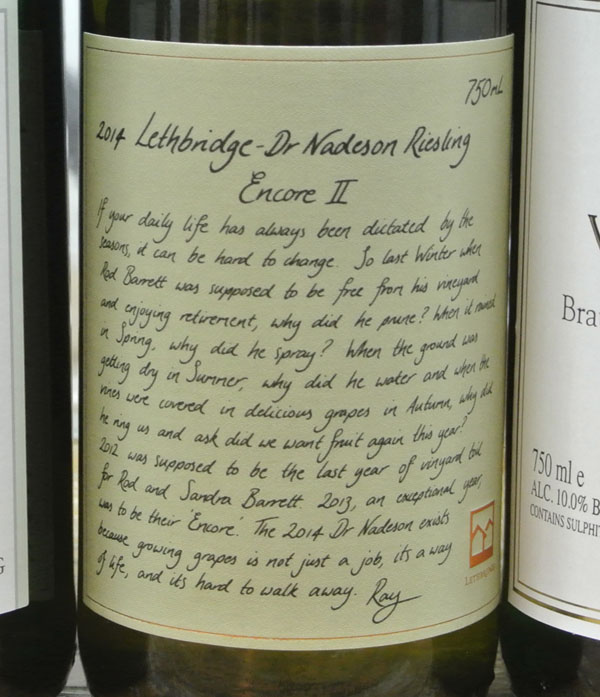 750mL
2014 Lethbridge-Dr Nadeson Riesling
Encore II
If your daily life has always been dictated by the
seasons, it can be hard to change. So last Winter when
Rod Barrett was supposed to be free from his vineyard
and enjoying retirement, why did he prune? When it rained
in Spring, why did he spray? When the ground was
getting dry in Summer, why did he water and when the
vines were covered in delicious grapes in Autumn, why did
he ring us and ask did we want fruit again this year?
2012 was supposed to be the last year of vineyard toil
for Rod and Sandra Barrett. 2013, an exceptional year,
was to be their 'Encore'. The 2014 Dr Nadeson exists
because growing grapes is not just a job, its a way
of life, and its hard to walk away. Ray
LETHBRIDGE
V
Bra
750 ml e
ALC. 10.0% B
CONTAINS SULPHI
G